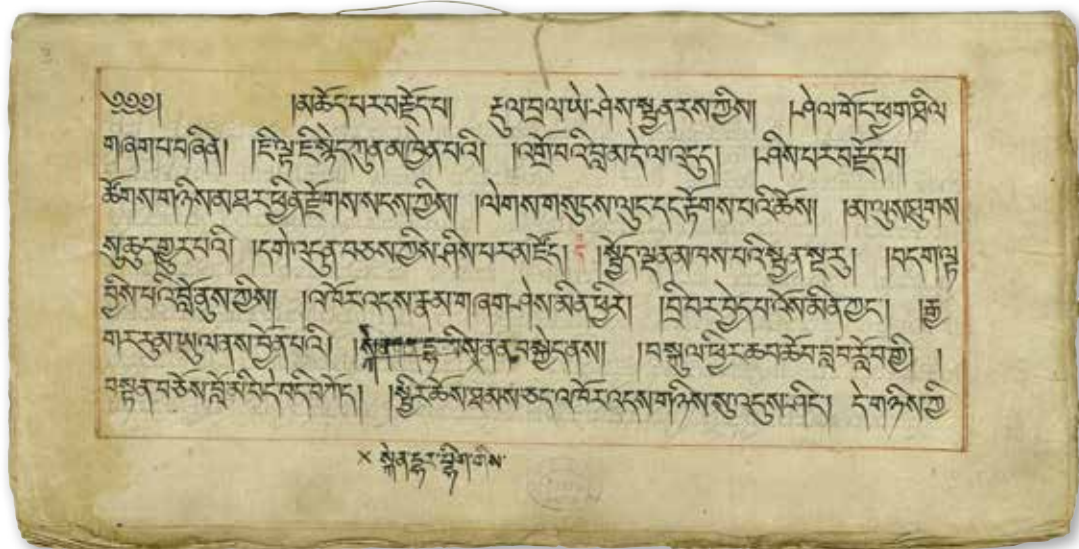 ༄༅༅། །མཆོད་པར་བརྗོད་པ། རྡུལ་བྲལ་ཡེ་ཤེས་སྤྱན་རས་ཀྱིས། །ཤེལ་གོང་ཕྱག་མཐིལ
གཞག་པ་བཞིན། །ཇི་ལྟ་ཇི་སྙེད་ཀུན་མཁྱེན་པའི། །འགྲོ་བའི་བླ་མ་དེ་ལ་འདུད། །ཤིས་པར་བརྗོད་པ།
ཚོགས་གཉིས་མཐར་ཕྱིན་རྫོགས་སངས་ཀྱིས། །ལེགས་གསུངས་ལུང་དང་རྟོགས་པའི་ཆོས། །མ་ལུས་ཐུགས
སུ་ཆུད་གྱུར་པའི། །དགེ་འདུན་བཅས་ཀྱིས་ཤིས་པར་མཛོད། །སྤྱོད་ལྡན་མཁས་པའི་སྤྱན་སྔ་རུ། །བདག་ལྟ
བྱིས་པའི་བློ་ནུས་ཀྱིས། །འཁོར་འདས་རྣམ་གཞག་ཤེས་མིན་ཕྱིར། །བྲི་བར་བྱེད་པ་འོས་མིན་ཀྱང་། །རྒྱ
གར་རུམ་ཡུལ་ནས་བྱོན་པའི། །བསྐྱེད་ནས། །བསྐུལ་ཕྱིར་ཆབ་ཆོབ་བླབ་རློབ་ཀྱི། །
བསྟན་བཅོས་བློ་མི་བདེ་བདི་བཀོད། །སྤྱིར་ཆོས་ཐམས་ཅད་འཁོར་འདས་གཉིས་སུ་འདུས་ཤིང་། དེ་གཉིས་ཀྱི
× སྐེན་དྷར་བྷེག་གིས་